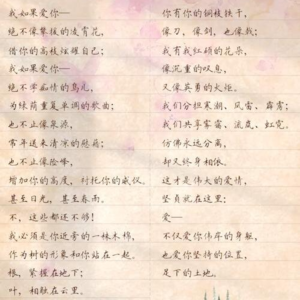 我如果爱你—
绝不像攀援的凌霄花，
借你的高枝炫耀自己；
我如果爱你—
绝不学痴情的鸟儿，
为绿荫重复单调的歌曲；
也不止像泉源，
常年送来清凉的慰藉；
也不止像险峰，
增加你的高度，衬托你的威仪。
甚至日光，甚至春雨。
不，这些都还不够！
我必须是你近旁的一株木棉，
作为树的形象和你站在一起。
根，紧握在地下；
叶，相触在云里。
你有你的铜枝铁干，
像刀，像剑，也像戟；
我有我红硕的花朵，
像沉重的叹息，
又像英勇的火炬。
我们分担寒潮、风雷、霹雳；
我们共享雾霭、流岚、虹霓。
仿佛永远分离，
却又终身相依。
这才是伟大的爱情，
坚贞就在这里：
爱—
不仅爱你伟岸的身躯，
也爱你坚持的位置，
足下的土地。